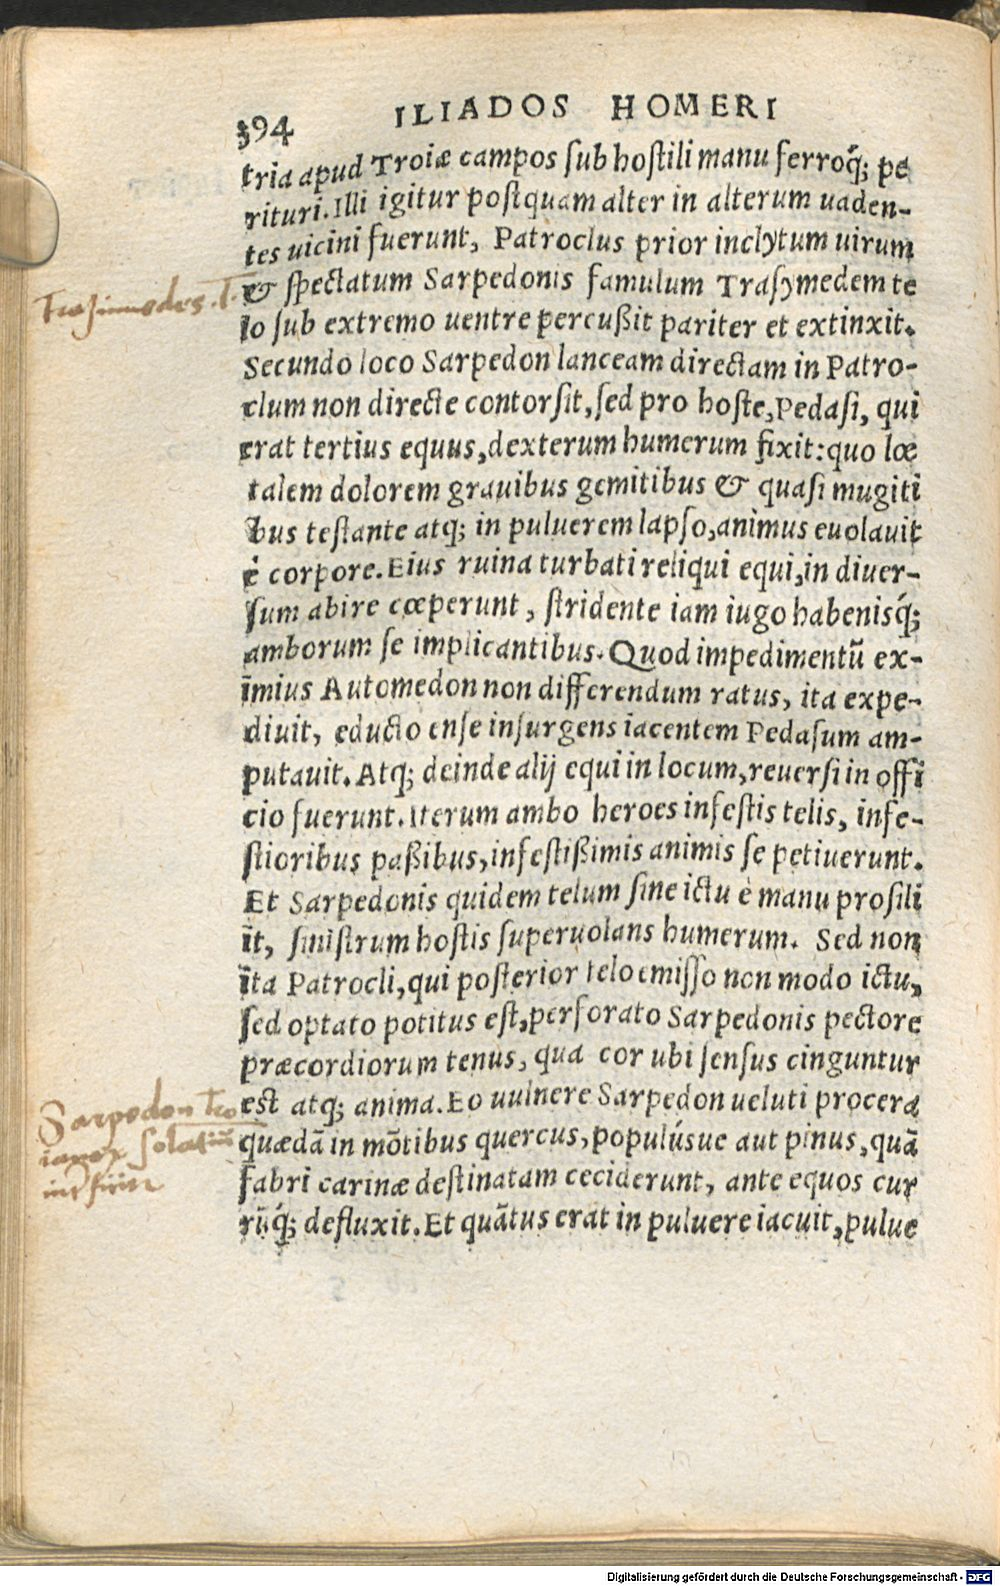 394 ILIADOS HOMERI
tria apud Troiæ campos ſub hoſtili manu ferroq́; pe
rituri. Illi igitur poſtquam alter in alterum uaden-
tes uicini fuerunt, Patroclus prior inclytum uirum
& ſpectatum Sarpedonis famulum Traſymedem te
lo ſub extremo uentre percußit pariter et extinxit.
Secundo loco Sarpedon lanceam directam in Patro-
clum non directe contorſit, ſed pro hoſte, Pedaſi, qui
erat tertius equus, dexterum humerum fixit: quo lœ
talem dolorem grauibus gemitibus & quaſi mugiti
bus teſtante atq; in puluerem lapſo, animus euolauit
è corpore. Eius ruina turbati reliqui equi, in diuer-
ſum abire cœperunt, ſtridente iam iugo habenisq́;
amborum ſe implicantibus. Quod impedimentũ ex-
imius Automedon non differendum ratus, ita expe-
diuit, educto enſe inſurgens iacentem Pedaſum am-
putauit. Atq; deinde alij equi in locum, reuerſi in offi
cio fuerunt. Iterum ambo heroes infeſtis telis, infe-
ſtioribus paßibus, infeſtißimis animis ſe petiuerunt.
Et Sarpedonis quidem telum ſine ictu è manu proſili
it, ſiniſtrum hoſtis ſuperuolans humerum. Sed non
ita Patrocli, qui poſterior telo emiſſo non modo ictu,
ſed optato potitus eſt, perforato Sarpedonis pectore
præcordiorum tenus, qua cor ubi ſenſus cinguntur
eſt atq; anima. Eo uulnere Sarpedon ueluti procera
quædã in mõtibus quercus, populúsue aut pinus, quã
fabri carinæ deſtinatam ceciderunt, ante equos cur
rũq́; defluxit. Et quãtus erat in puluere iacuit, pulue
Traſimedes. T.
Sarpedon Tro
ianoꝝ ſolatiũ
Digitalisierung gefördert durch die Deutsche Forschungsgemeinschaft - DFG